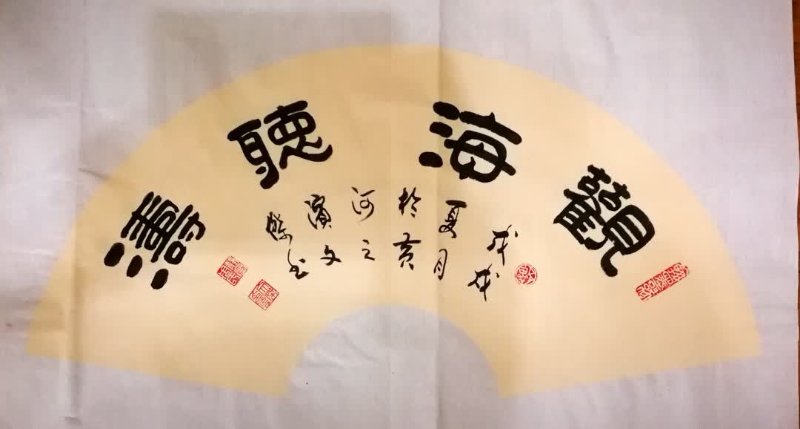 觀海聽濤
戊戌
夏月
於黄
河之
濱文